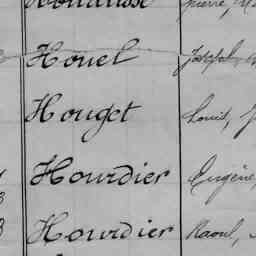 Houel Joseph
Houget Louis,
Hourdier Eugène,
Hourdier Raoul,